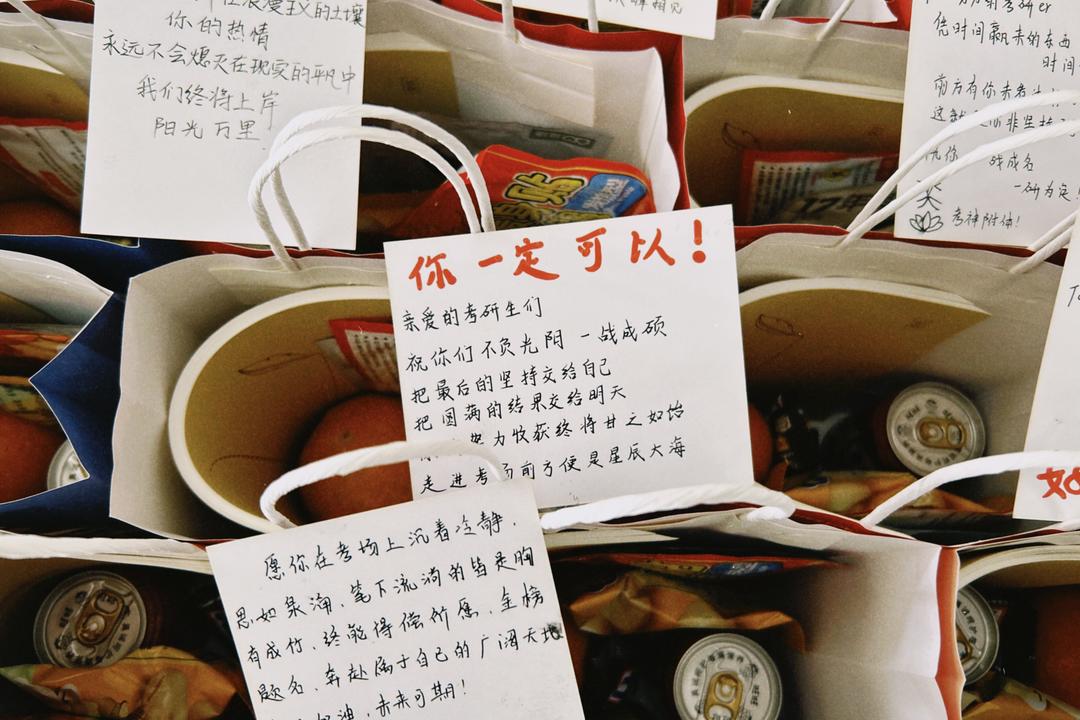 的土壤
你的热情
永远不会熄灭在现实的平凡中
我们终将上岸
阳光万里
凭时间赢来的东西
时间
前方有你
非坚持
战成名
一研为定
考神附体!
17年
你一定可以!
亲爱的考研生们
祝你们不负光阴 一战成硕
把最后的坚持交给自己
把圆满的结果交给明天
力收获终将甘之如饴
走进考场前方便是星辰大海
愿你在考场上沉着冷静,
思如泉涌、笔下流淌的皆是胸
有成竹、终能得偿所愿、金榜
题名、奔赴属于自己的广阔天地
加油、未来可期!